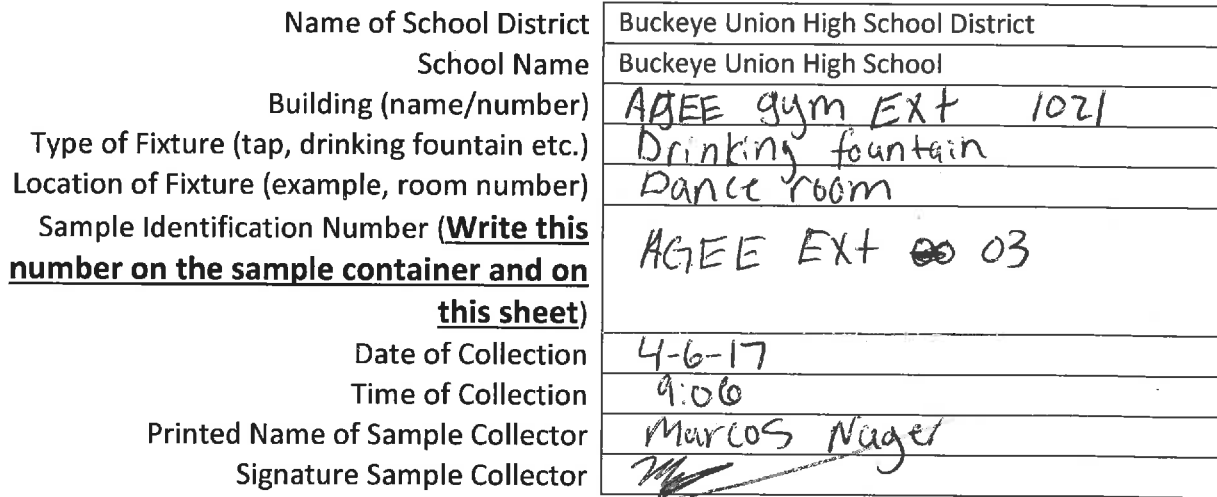 Name of School District Buckeye Union High School District
School Name Buckeye Union High School
Building (name/number) AGEE gym EXt 1021
Type of Fixture (tap, drinking fountain etc.) Drinking fountain
Location of Fixture (example, room number) Dance room
Sample Identification Number (Write this
number on the sample container and on
this sheet)
AGEE EXt 03
Date of Collection 4-6-17
Time of Collection 9:06
Printed Name of Sample Collector Marcos Nager
Signature Sample Collector